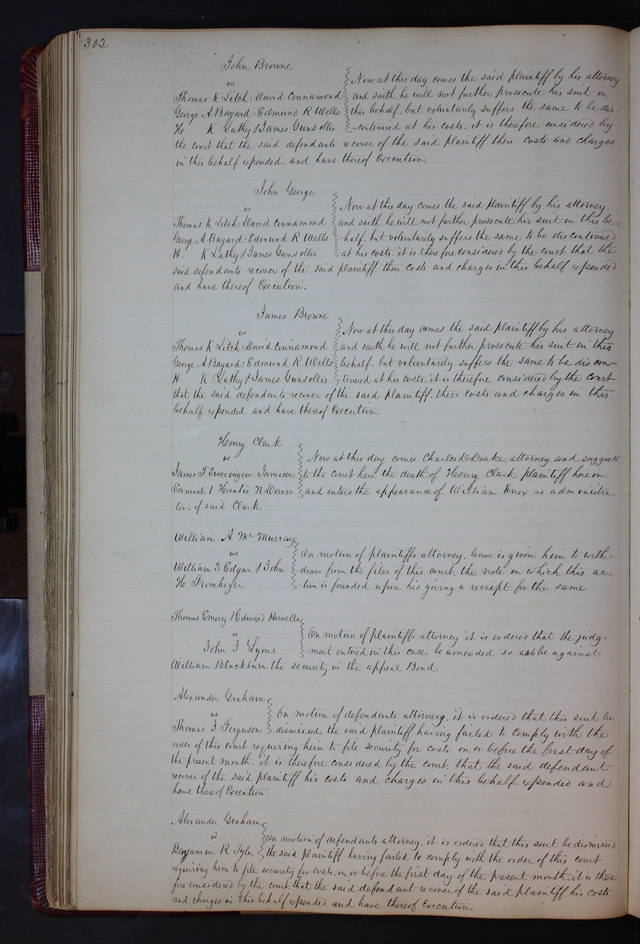 302
John Browne
vs
Thomas K Litch : David Cinnamond
George A Bayard : Edmund R Wells
H K Lathy & James Gunsollis
Now at this day comes the said plaintiff by his attorney
and saith he will not further prosecute his suit in
this behalf, but voluntarily suffers the same to be dis-
-continued at his costs, it is therefore considered by
the court that the said defendants recover of the said plaintiff their costs and charges
in this behalf expended, and have thereof Execution.
John George
vs
Thomas K Litch : David Cinnamond
George A Bayard : Edmund R Wells
H. K Lathy & James Gunsollis
Now at this day comes the said Plaintiff by his attorney
and saith he will not further prosecute his suit in this be
half, but voluntarily suffers the same to be discontinued
at his costs, it is therefore considered by the court that the
said defendants recover of the said plaintiff their costs and charges in this behalf expended
and have thereof Execution.
James Browne
vs
Thomas K Litch : David Cinnamond
George A Bayard : Edmund R Wells
H K Lathy & James Gunsollis
Now at this day comes the said plaintiff by his attorney
and saith he will not further prosecute his suit in this
behalf, but voluntarily suffers the same to be discon-
tinued at his costs, it is therefore considered by the court
that the said defendants recover of the said plaintiff, their costs and charges in this
behalf expended and have thereof Execution.
Henry Clark
vs
James T Swearengen Jamison
Samuel & Horatio N Davis
Now at this day comes Charles D Drake, attorney and suggests
to the court here the death of Henry Clark plaintiff here in,
and enters the appearance of William Knox as administra
tor, of said Clark
William A McMurray
vs
William S Edgar & John
H Frombeger
On motion of plaintiffs attorney, leave is given him to with-
draw from the files of this court, the note on which this ac-
-tion is founded upon his giving a receipt for the same
Thomas Emory & Edward Howells
vs
John I Lyons
On motion of plaintiffs attorney it is ordered that the judg-
ment entered in this case, be amended so as to be against
William Blackburn the security in the appeal Bond
Alexander Graham
vs
Thomas I Ferguson
On motion of defendants attorney, it is ordered that this suit be
dismissed, the said plaintiff having failed to comply with the
order of this court requiring him to file security for costs on or before the first day of
the present month, it is therefore considered by the court, that the said defendant
recover of the said plaintiff his costs and charges in this behalf expended and
have thereof Execution
Alexander Graham
vs
Benjamin R Tyler
On motion of defendants attorney, it is ordered that this suit be dismissed
the said Plaintiff having failed to comply with the order of this court
requiring him to file security for costs, on or before the first day of the present month, it is there
fore considered by the court, that the said defendant recover of the said plaintiff, his costs
and charges in this behalf expended, and have thereof Execution.